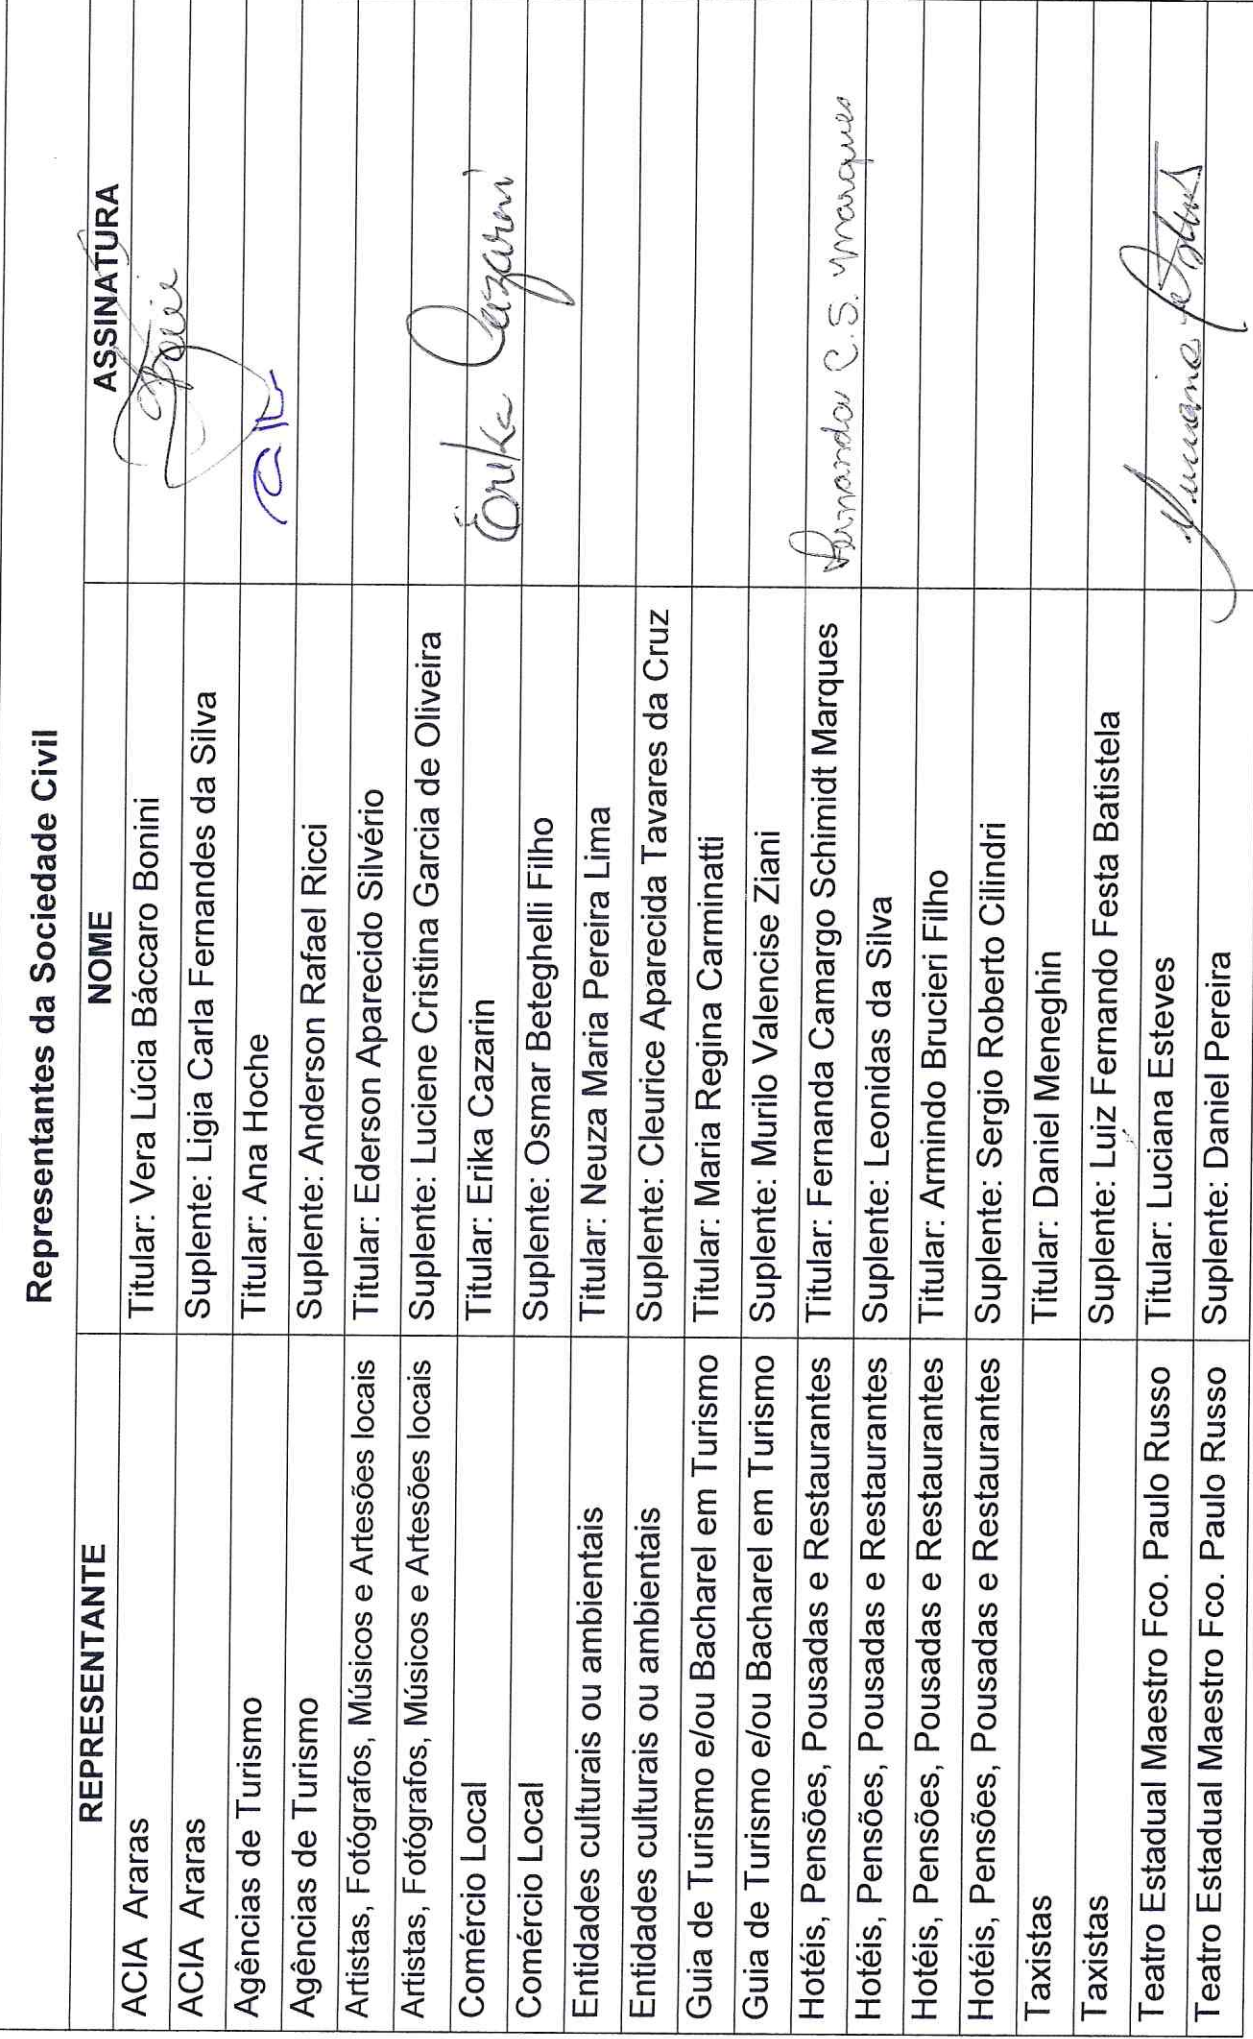 Representantes da Sociedade Civil
REPRESENTANTE NOME ASSINATURA
ACIA Araras Titular: Vera Lúcia Báccaro Bonini
ACIA Araras Suplente: Ligia Carla Fernandes da Silva
Agências de Turismo Titular: Ana Hoche
Agências de Turismo Suplente: Anderson Rafael Ricci
Artistas, Fotógrafos, Músicos e Artesões locais Titular: Ederson Aparecido Silvério
Artistas, Fotógrafos, Músicos e Artesões locais Suplente: Luciene Cristina Garcia de Oliveira
Comércio Local Titular: Erika Cazarin Erika Cazarini
Comércio Local Suplente: Osmar Beteghelli Filho
Entidades culturais ou ambientais Titular: Neuza Maria Pereira Lima
Entidades culturais ou ambientais Suplente: Cleurice Aparecida Tavares da Cruz
Guia de Turismo e/ou Bacharel em Turismo Titular: Maria Regina Carminatti
Guia de Turismo e/ou Bacharel em Turismo Suplente: Murilo Valencise Ziani
Hotéis, Pensões, Pousadas e Restaurantes Titular: Fernanda Camargo Schimidt Marques Fernanda C. S. Marques
Hotéis, Pensões, Pousadas e Restaurantes Suplente: Leonidas da Silva
Hotéis, Pensões, Pousadas e Restaurantes Titular: Armindo Brucieri Filho
Hotéis, Pensões, Pousadas e Restaurantes Suplente: Sergio Roberto Cilindri
Taxistas Titular: Daniel Meneghin
Taxistas Suplente: Luiz Fernando Festa Batistela
Teatro Estadual Maestro Fco. Paulo Russo Titular: Luciana Esteves
Teatro Estadual Maestro Fco. Paulo Russo Suplente: Daniel Pereira